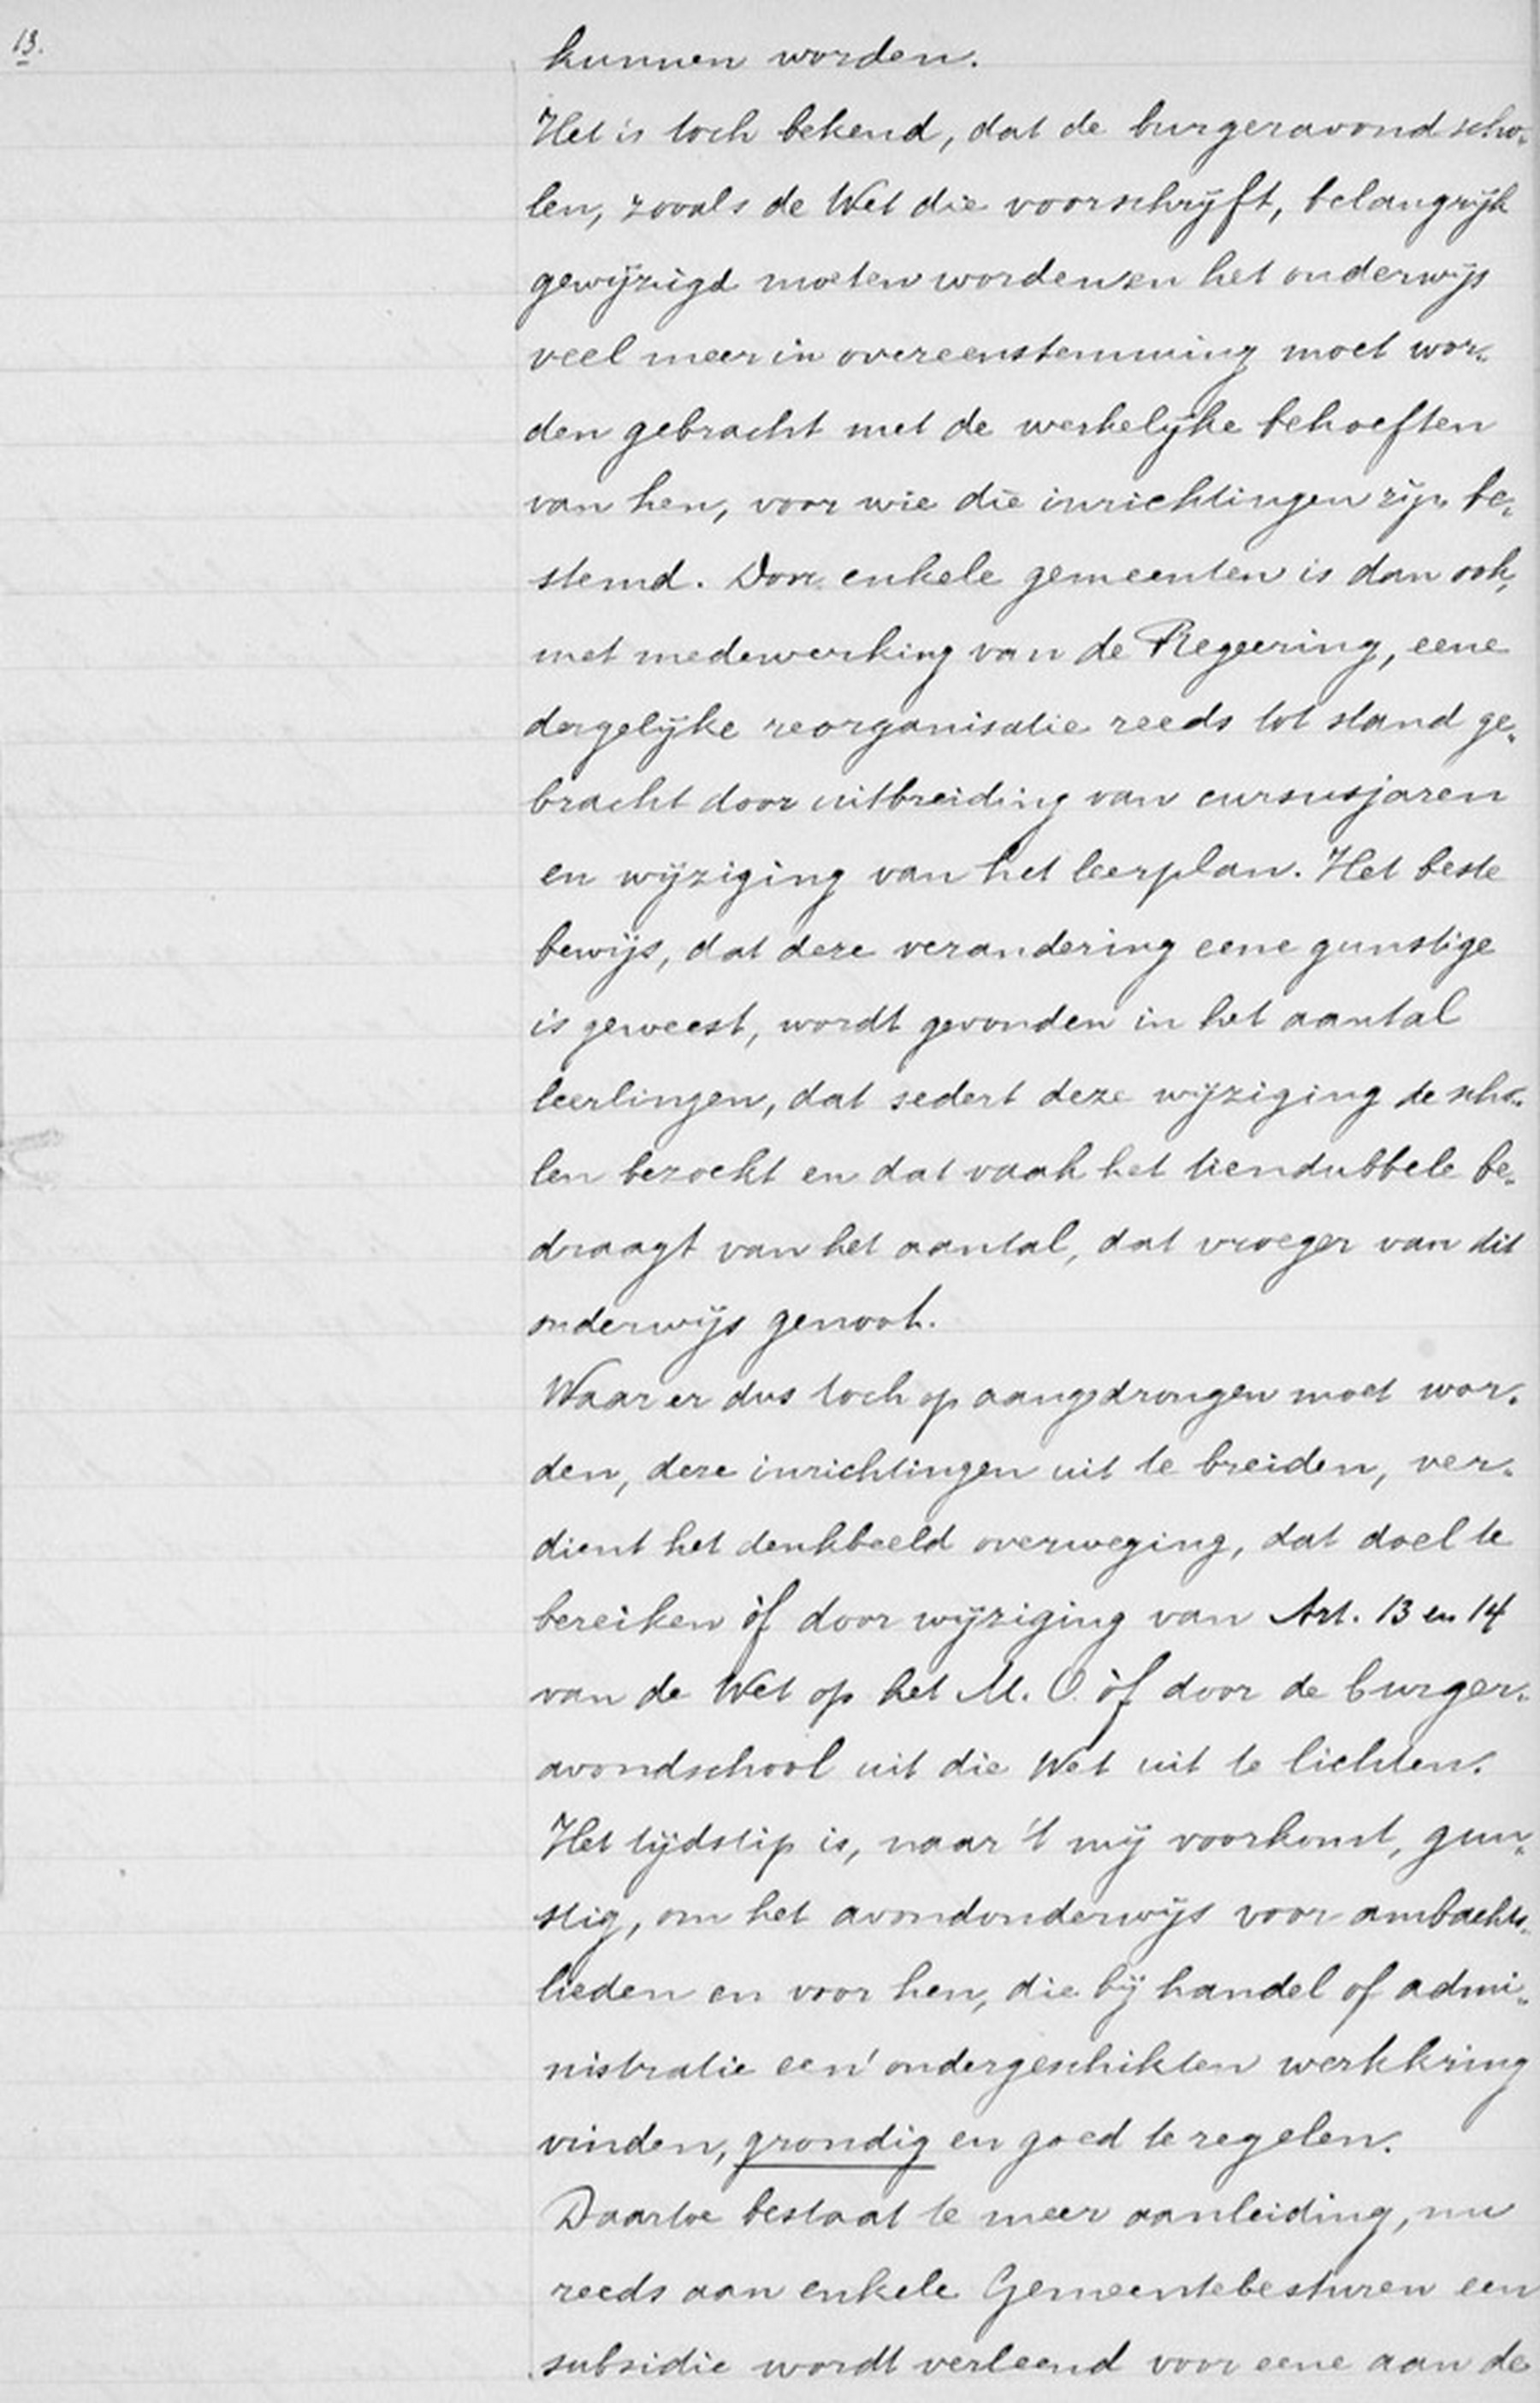 13.
kunnen worden.
Het is toch bekend, dat de burgeravondscho„
len, zooals de Wet die voorschrijft, belangrijk
gewijzigd moeten worden en het onderwijs
veel meer in overeenstemming moet wor„
den gebracht met de werkelijke behoeften
van hen, voor wie die inrichtingen zijn be„
stemd. Door enkele gemeenten is dan ook,
met medewerking van de Regeering, eene
dergelijke reorganisatie reeds tot stand ge„
bracht door uitbreiding van cursusjaren
en wijziging van het leerplan. Het beste
bewijs, dat deze verandering eene gunstige
is geweest, wordt gevonden in het aantal
leerlingen, dat sedert deze wijziging de scho„
len bezoekt en dat vaak het tiendubbele be„
draagt van het aantal, dat vroeger van dit
onderwijs genoot.
Waar er dus toch op aangedrongen moet wor„
den, deze inrichtingen uit te breiden, ver„
dient het denkbeeld overweging, dat doel te
bereiken òf door wijziging van Art. 13 en 14
van de Wet op het M. O. òf door de burger„
avondschool uit die Wet uit te lichten.
Het tijdstip is, naar 't mij voorkomt, gun„
stig, om het avondonderwijs voor ambachts„
lieden en voor hen, die bij handel of admi„
nistratie een' ondergeschikten werkkring
vinden, grondig en goed te regelen.
Daartoe bestaat te meer aanleiding, nu
reeds aan enkele Gemeentebesturen een
subsidie wordt verleend voor eene aan de